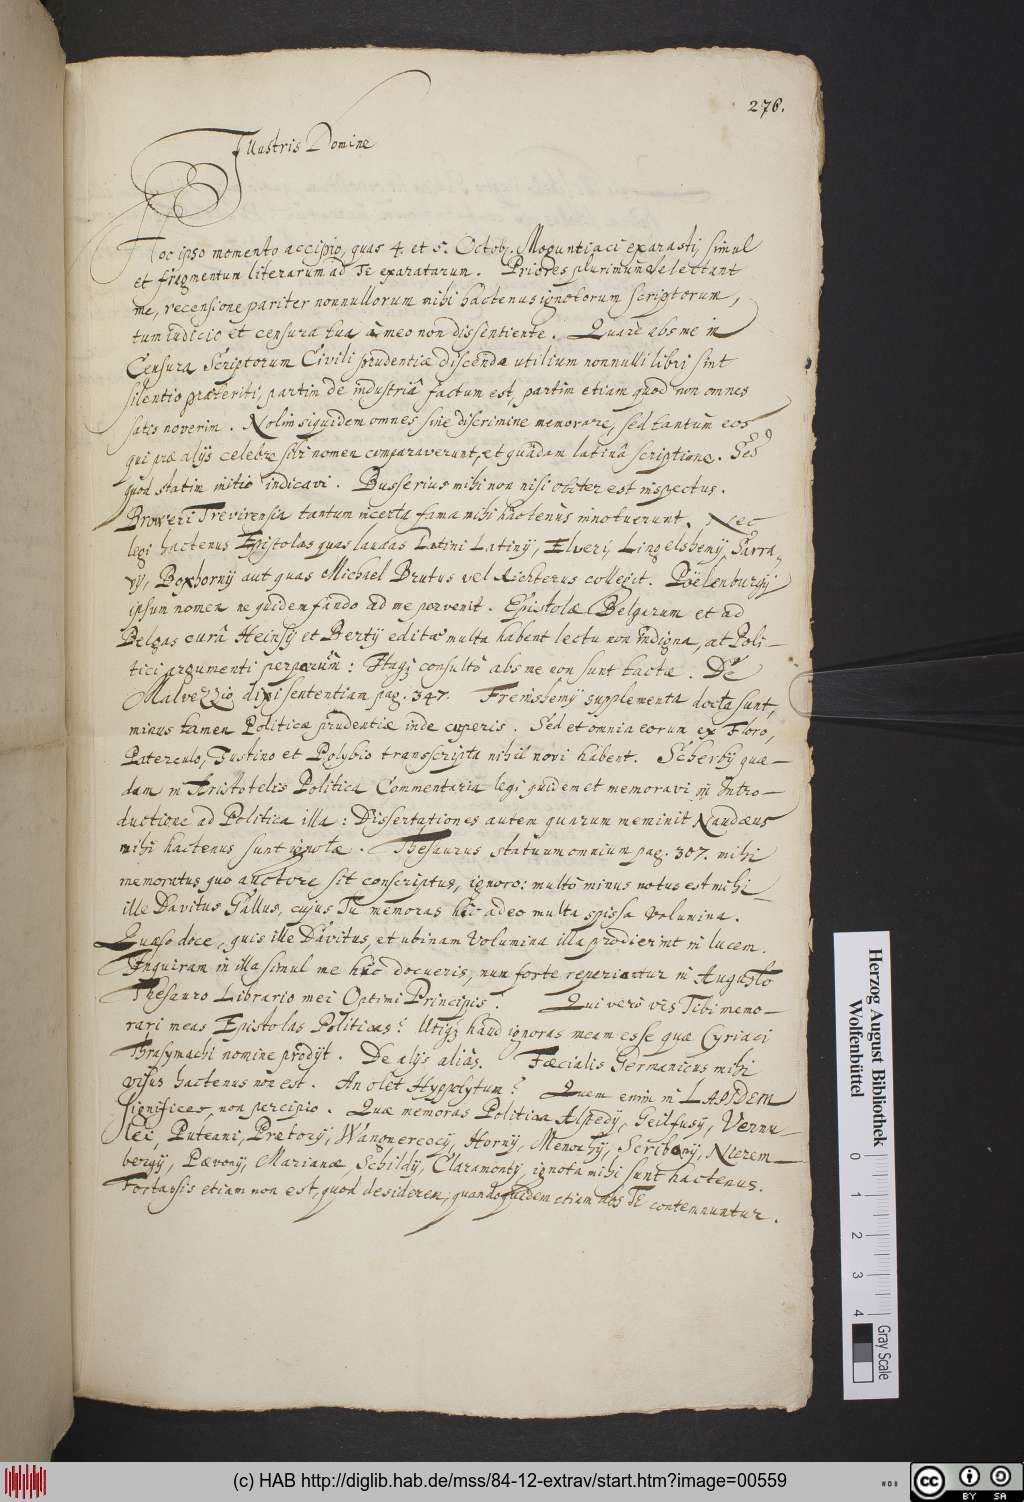 276.
Illustris Domine
Hoc ipso momento accipio, quas 4. et 5. Octob. Moguntiaci exarasti, simul
et fragmentum literarum ad Te exaratarum. Priores plurimum delectant
me, recensione pariter nonnullorum mihi hactenus ignotorum scriptorum,
tum iudicio et censura tua à meo non dissentiente. Quare abs me in
Censura Scriptorum Civili prudentiæ discendæ utilium nonnulli libri sint
silentio præteriti, partim de industriâ factum est, partim etiam quod non omnes
satis noverim. Nolim siquidem omnes sine discrimine memorare, sed tantum eos
qui præ alijs celebre sibi nomen comparaverunt, et quidem latinâ scriptione. Sed
quod statim initio indicavi. Busserius mihi non nisi obiter est inspectus.
Broweri Trevirensia tantum incerta fama mihi hactenus innotuerunt. Nec
legi hactenus Epistolas quas laudas Latini Latinij, Elverj, Lingelshemij, Sarra-
vij, Boxhornij aut quas Michael Brutus vel Richterus collegit. Pöelenburgij
ipsum nomen ne quidem fando ad me pervenit. Epistolæ Belgarum et ad
Belgas curâ Heinsij et Bertij editæ multa habent lectu non indigna, at Poli-
tici argumenti perparùm: Itaq; consultò abs me non sunt tactæ. De
Malvezzio dixi sententiam pag. 347. Freinshemij supplementa docta sunt,
minus tamen Politicæ prudentiæ inde ceperis. Sed et omnia eorum ex Floro,
Paterculo, Justino et Polybio transcripta nihil novi habent. Scherbij quæ-
dam in Aristotelis Politica Commentaria legi quidem et memoravi in Intro-
ductione ad Politica illa: Dissertationes autem quarum meminit Naudæus
mihi hactenus sunt ignotæ. Thesaurus statuum omnium pag. 307. mihi
memoratus quo auctore sit conscriptus, ignoro: multò minus notus est mihi
ille Davitus Gallus, cujus Tu memoras hîc adeo multa spissa volumina.
Quæso doce, quis ille Davitus, et ubinam volumina illa prodierint in lucem.
Inquiram in illa simul me hîc docueris, num forte reperiantur in Augusto
Thesauro Librario mei Optimi Principis. Qui verò vis Tibi memo-
rari meas Epistolas Politicas? Utiq; haud ignoras meam esse quæ Cyriaci
Thrasymachi nomine prodijt. De alijs aliàs. Fœcialis Germanicus mihi
visus hactenus non est. An olet Hyppolytum? Quem enim in LAPIDEM
significes, non percipio. Quæ memoras Politica Alstedij, Geilfusij, Vernu-
lei, Puteani, Prætorij, Wangnereccij, Hornij, Menochij, Scribonij, Nierem-
bergij, Pævonij, Marianæ, Schildij, Claramontij, ignota mihi sunt hactenus.
Fortassis etiam non est, quod desiderem, quandoquidem etiam abs Te contemnuntur.
Herzog August Bibliothek
Wolfenbüttel
0 1 2 3 4
Gray Scale
(c) HAB http://diglib.hab.de/mss/84-12-extrav/start.htm?image=00559
cc
BY SA